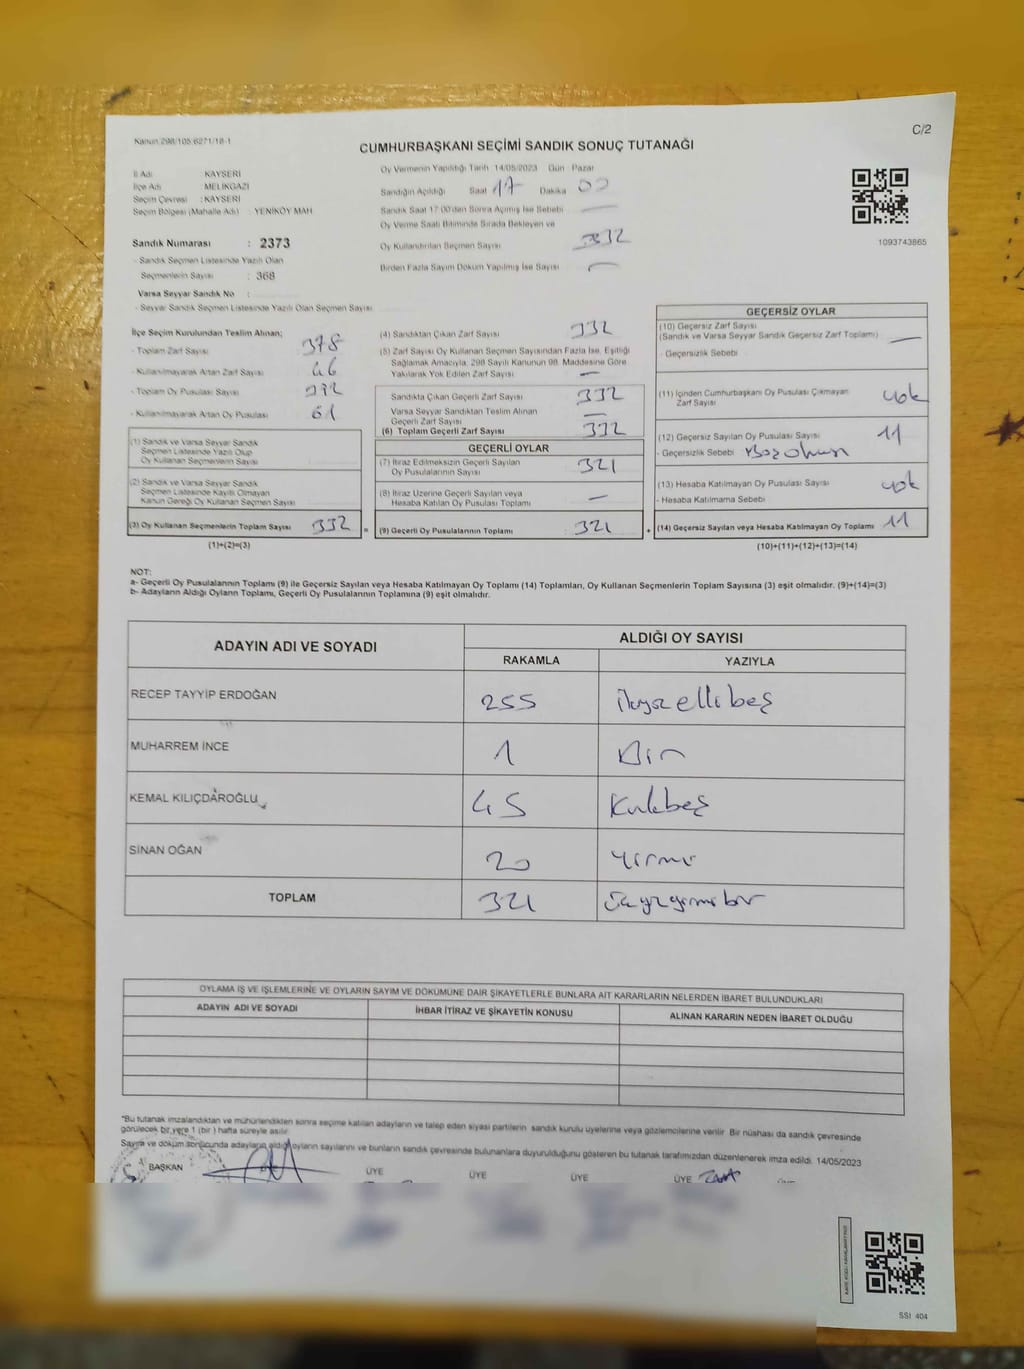 Kanun:298/105;6271/18-1
C/2
CUMHURBAŞKANI SEÇİMİ SANDIK SONUÇ TUTANAĞI
İl Adı : KAYSERİ
İlçe Adı : MELİKGAZİ
Seçim Çevresi : KAYSERİ
Seçim Bölgesi (Mahalle Adı) : YENİKÖY MAH
Sandık Numarası : 2373
- Sandık Seçmen Listesinde Yazılı Olan
Seçmenlerin Sayısı : 368
Varsa Seyyar Sandık No :
- Seyyar Sandık Seçmen Listesinde Yazılı Olan Seçmen Sayısı
Oy Vermenin Yapıldığı Tarih 14/05/2023 Gün Pazar
Sandığın Açıldığı Saat 17 Dakika 00
Sandık Saat 17:00'den Sonra Açılmış İse Sebebi —
Oy Verme Saati Bitiminde Sırada Bekleyen ve
Oy Kullandırılan Seçmen Sayısı 332
Birden Fazla Sayım Döküm Yapılmış İse Sayısı —
1093743865
İlçe Seçim Kurulundan Teslim Alınan;
- Toplam Zarf Sayısı 378
- Kullanılmayarak Artan Zarf Sayısı 46
- Toplam Oy Pusulası Sayısı
- Kullanılmayarak Artan Oy Pusulası 61
(1) Sandık ve Varsa Seyyar Sandık
Seçmen Listesinde Yazılı Olup
Oy Kullanan Seçmenlerin Sayısı
(2) Sandık ve Varsa Seyyar Sandık
Seçmen Listesinde Kayıtlı Olmayan
Kanun Gereği Oy Kullanan Seçmen Sayısı
(3) Oy Kullanan Seçmenlerin Toplam Sayısı 332 =
(1)+(2)=(3)
(4) Sandıktan Çıkan Zarf Sayısı 332
(5) Zarf Sayısı Oy Kullanan Seçmen Sayısından Fazla İse, Eşitliği
Sağlamak Amacıyla, 298 Sayılı Kanunun 98. Maddesine Göre
Yakılarak Yok Edilen Zarf Sayısı —
Sandıkta Çıkan Geçerli Zarf Sayısı 332
Varsa Seyyar Sandıktan Teslim Alınan
Geçerli Zarf Sayısı —
(6) Toplam Geçerli Zarf Sayısı 332
GEÇERLİ OYLAR
(7) İtiraz Edilmeksizin Geçerli Sayılan
Oy Pusulalarının Sayısı 321
(8) İtiraz Üzerine Geçerli Sayılan veya
Hesaba Katılan Oy Pusulaları Toplamı —
(9) Geçerli Oy Pusulalarının Toplamı : 321 +
GEÇERSİZ OYLAR
(10) Geçersiz Zarf Sayısı
(Sandık ve Varsa Seyyar Sandık Geçersiz Zarf Toplamı) —
- Geçersizlik Sebebi
(11) İçinden Cumhurbaşkanı Oy Pusulası Çıkmayan
Zarf Sayısı yok
(12) Geçersiz Sayılan Oy Pusulası Sayısı 11
- Geçersizlik Sebebi
(13) Hesaba Katılmayan Oy Pusulası Sayısı yok
- Hesaba Katılmama Sebebi
(14) Geçersiz Sayılan veya Hesaba Katılmayan Oy Toplamı 11
(10)+(11)+(12)+(13)=(14)
NOT:
a- Geçerli Oy Pusulalarının Toplamı (9) ile Geçersiz Sayılan veya Hesaba Katılmayan Oy Toplamı (14) Toplamları, Oy Kullanan Seçmenlerin Toplam Sayısına (3) eşit olmalıdır. (9)+(14)=(3)
b- Adayların Aldığı Oyların Toplamı, Geçerli Oy Pusulalarının Toplamına (9) eşit olmalıdır.
ADAYIN ADI VE SOYADI
ALDIĞI OY SAYISI
RAKAMLA YAZIYLA
RECEP TAYYİP ERDOĞAN 255 ikiyüzellibeş
MUHARREM İNCE 1 Bir
KEMAL KILIÇDAROĞLU 45 Kırkbeş
SİNAN OĞAN 20 Yirmi
TOPLAM 321 üçyüzyirmibir
OYLAMA İŞ VE İŞLEMLERİNE VE OYLARIN SAYIM VE DÖKÜMÜNE DAİR ŞİKAYETLERLE BUNLARA AİT KARARLARIN NELERDEN İBARET BULUNDUKLARI
ADAYIN ADI VE SOYADI İHBAR İTİRAZ VE ŞİKAYETİN KONUSU ALINAN KARARIN NEDEN İBARET OLDUĞU
*Bu tutanak imzalandıktan ve mühürlendikten sonra seçime katılan adayların ve talep eden siyasi partilerin sandık kurulu üyelerine veya gözlemcilerine verilir. Bir nüshası da sandık çevresinde
görülecek bir yere 1 (bir) hafta süreyle asılır.
Sayım ve döküm sonucunda adayların aldığı oyların sayılarını ve bunların sandık çevresinde bulunanlara duyurulduğunu gösteren bu tutanak tarafımızdan düzenlenerek imza edildi. 14/05/2023
BAŞKAN ÜYE ÜYE ÜYE ÜYE
SSI 404